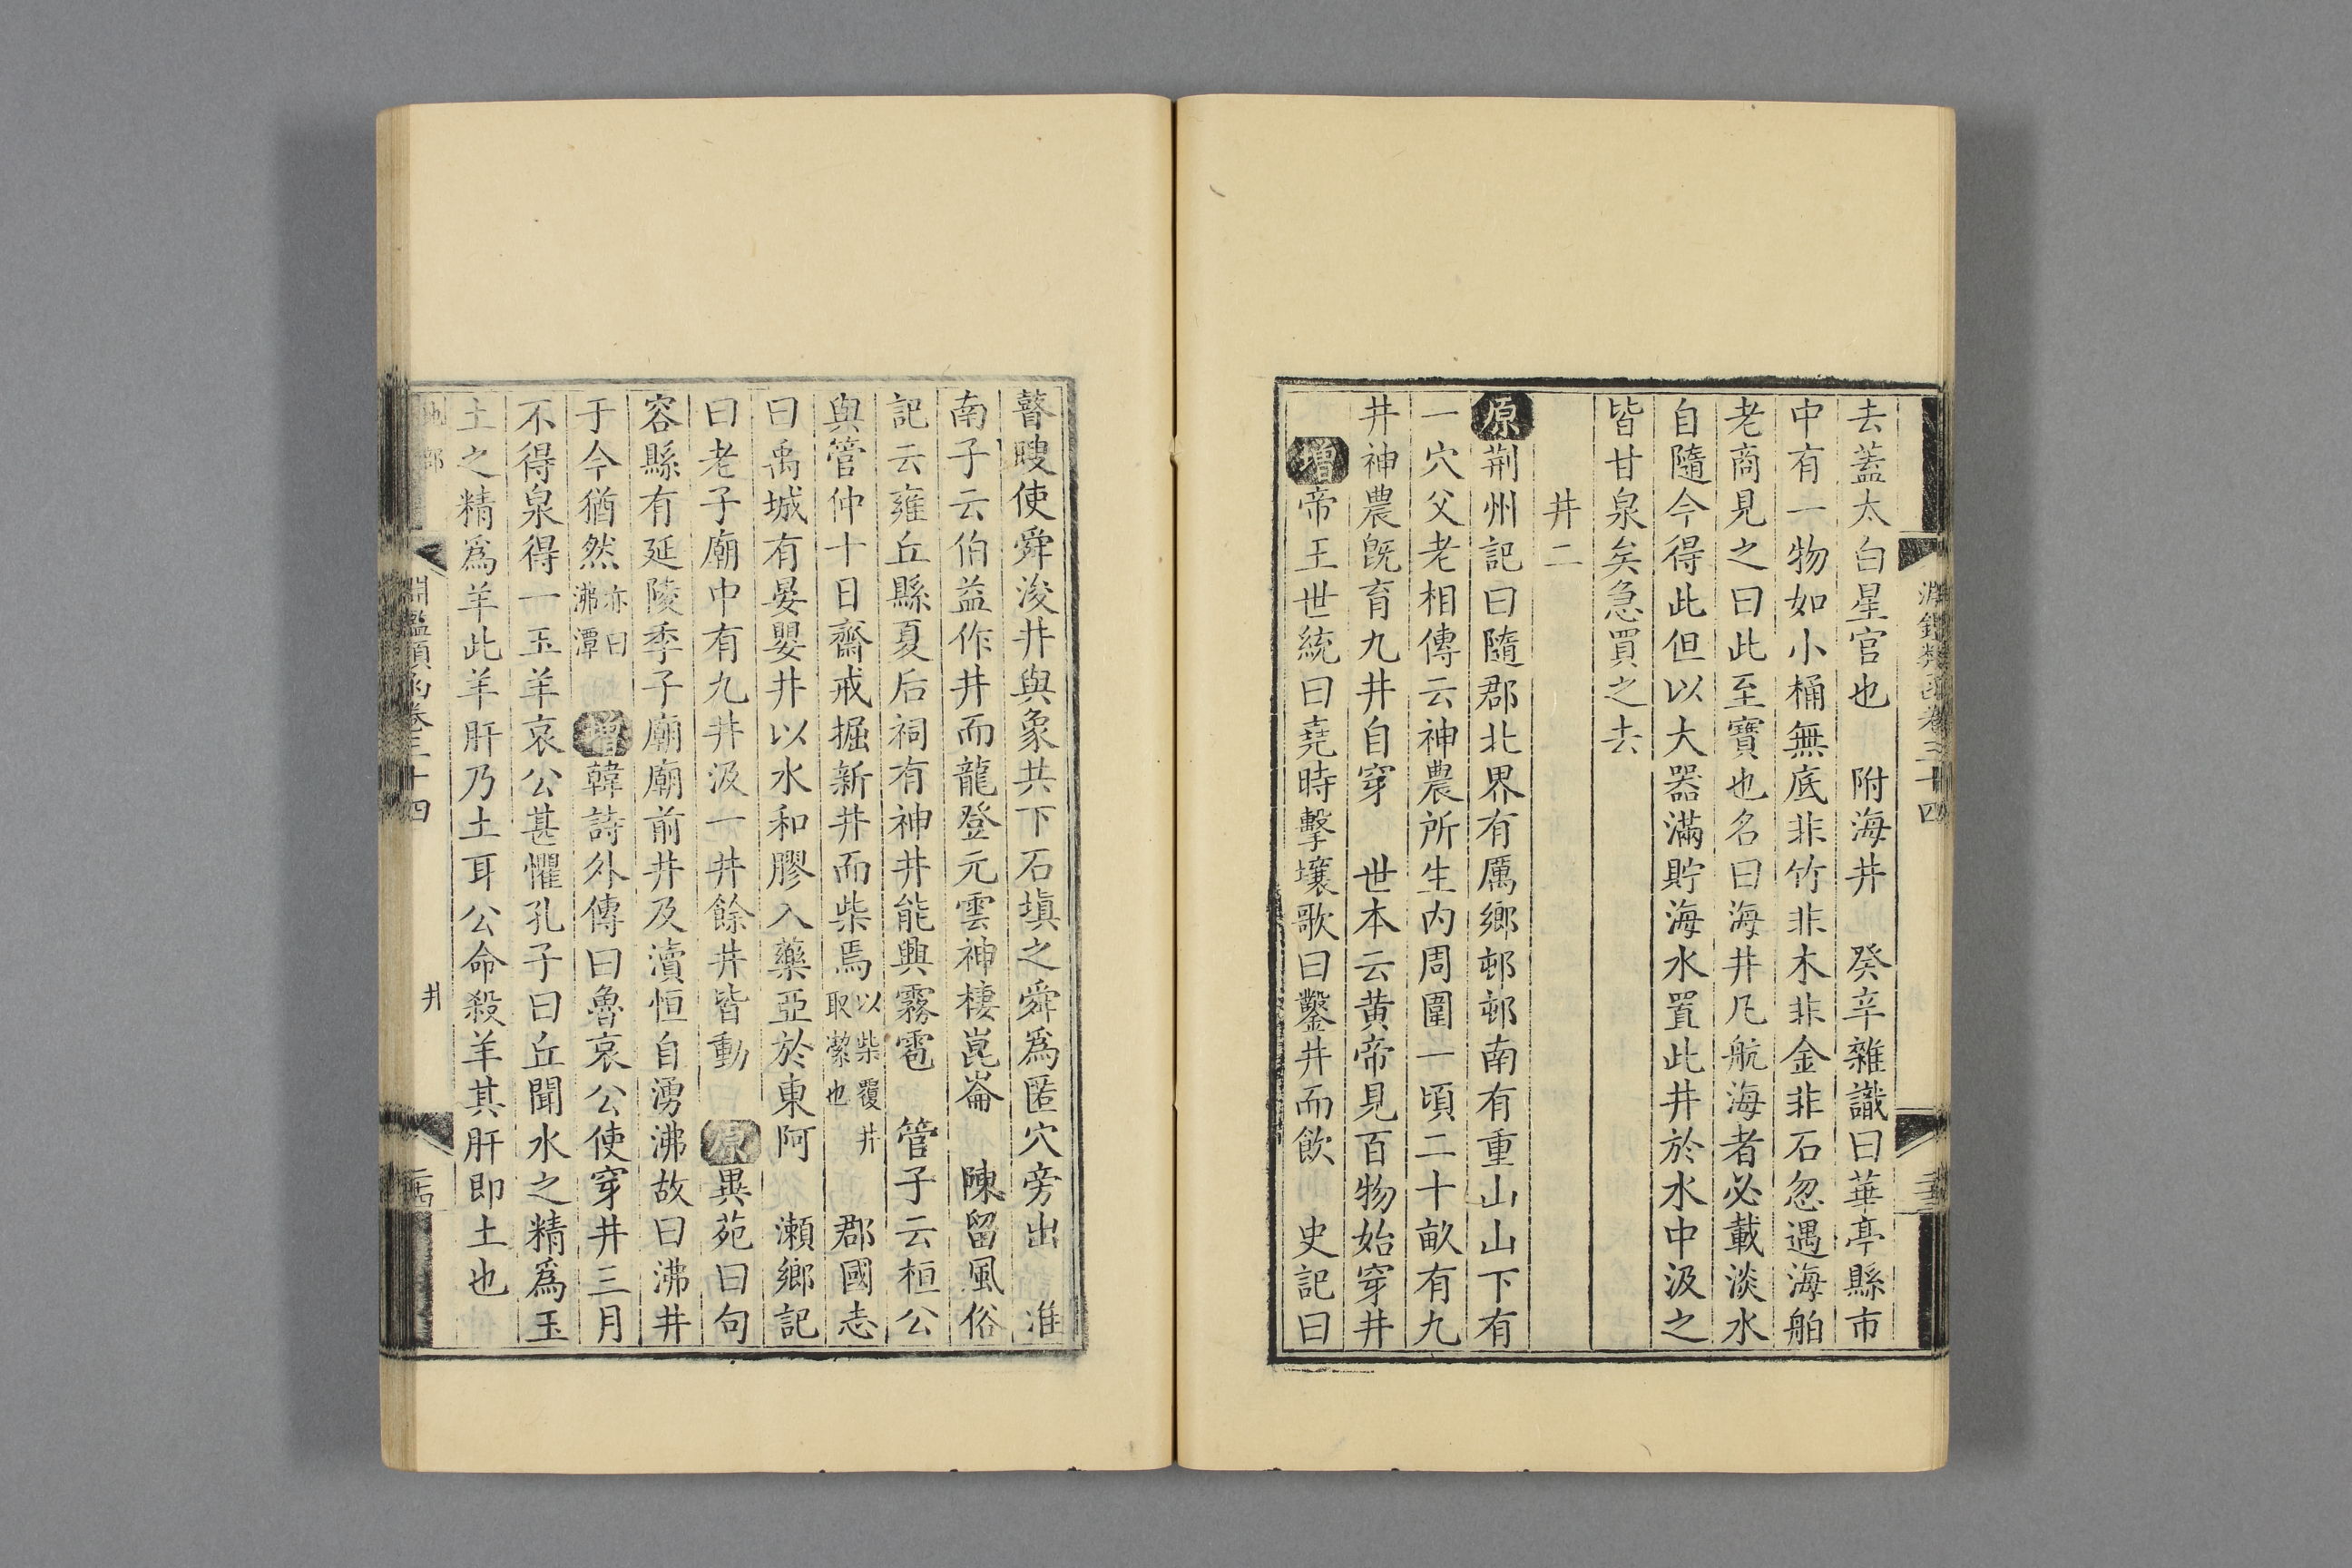 淵鑑類函卷三十四
去蓋太白星官也　附海井　癸辛雜識曰華亭縣市
中有一物如小桶無底非竹非木非金非石忽遇海舶
老商見之曰此至寶也名曰海井凡航海者必載淡水
自隨今得此但以大器滿貯海水置此井於水中汲之
皆甘泉矣急買之去
井二
原荆州記曰隨郡北界有厲鄉邨邨南有重山山下有
一穴父老相傳云神農所生内周圍一頃二十畝有九
井神農旣育九井自穿　世本云黄帝見百物始穿井
增帝王世統曰堯時擊壤歌曰鑿井而飲　史記曰
瞽瞍使舜浚井與象共下石塡之舜爲匿穴旁出　淮
南子云伯益作井而龍登元雲神棲崑崙　陳留風俗
記云雍丘縣夏后祠有神井能興霧雹　管子云桓公
與管仲十日齋戒掘新井而柴焉以柴覆井取潔也　郡國志
曰禹城有晏嬰井以水和膠入藥亞於東阿　瀨鄉記
曰老子廟中有九井汲一井餘井皆動　原異苑曰句
容縣有延陵季子廟廟前井及瀆恒自湧沸故曰沸井
于今猶然亦曰沸潭　增韓詩外傳曰魯哀公使穿井三月
不得泉得一玉羊哀公甚懼孔子曰丘聞水之精爲玉
土之精爲羊此羊肝乃土耳公命殺羊其肝即土也
地部　淵鑑類函卷三十四　井